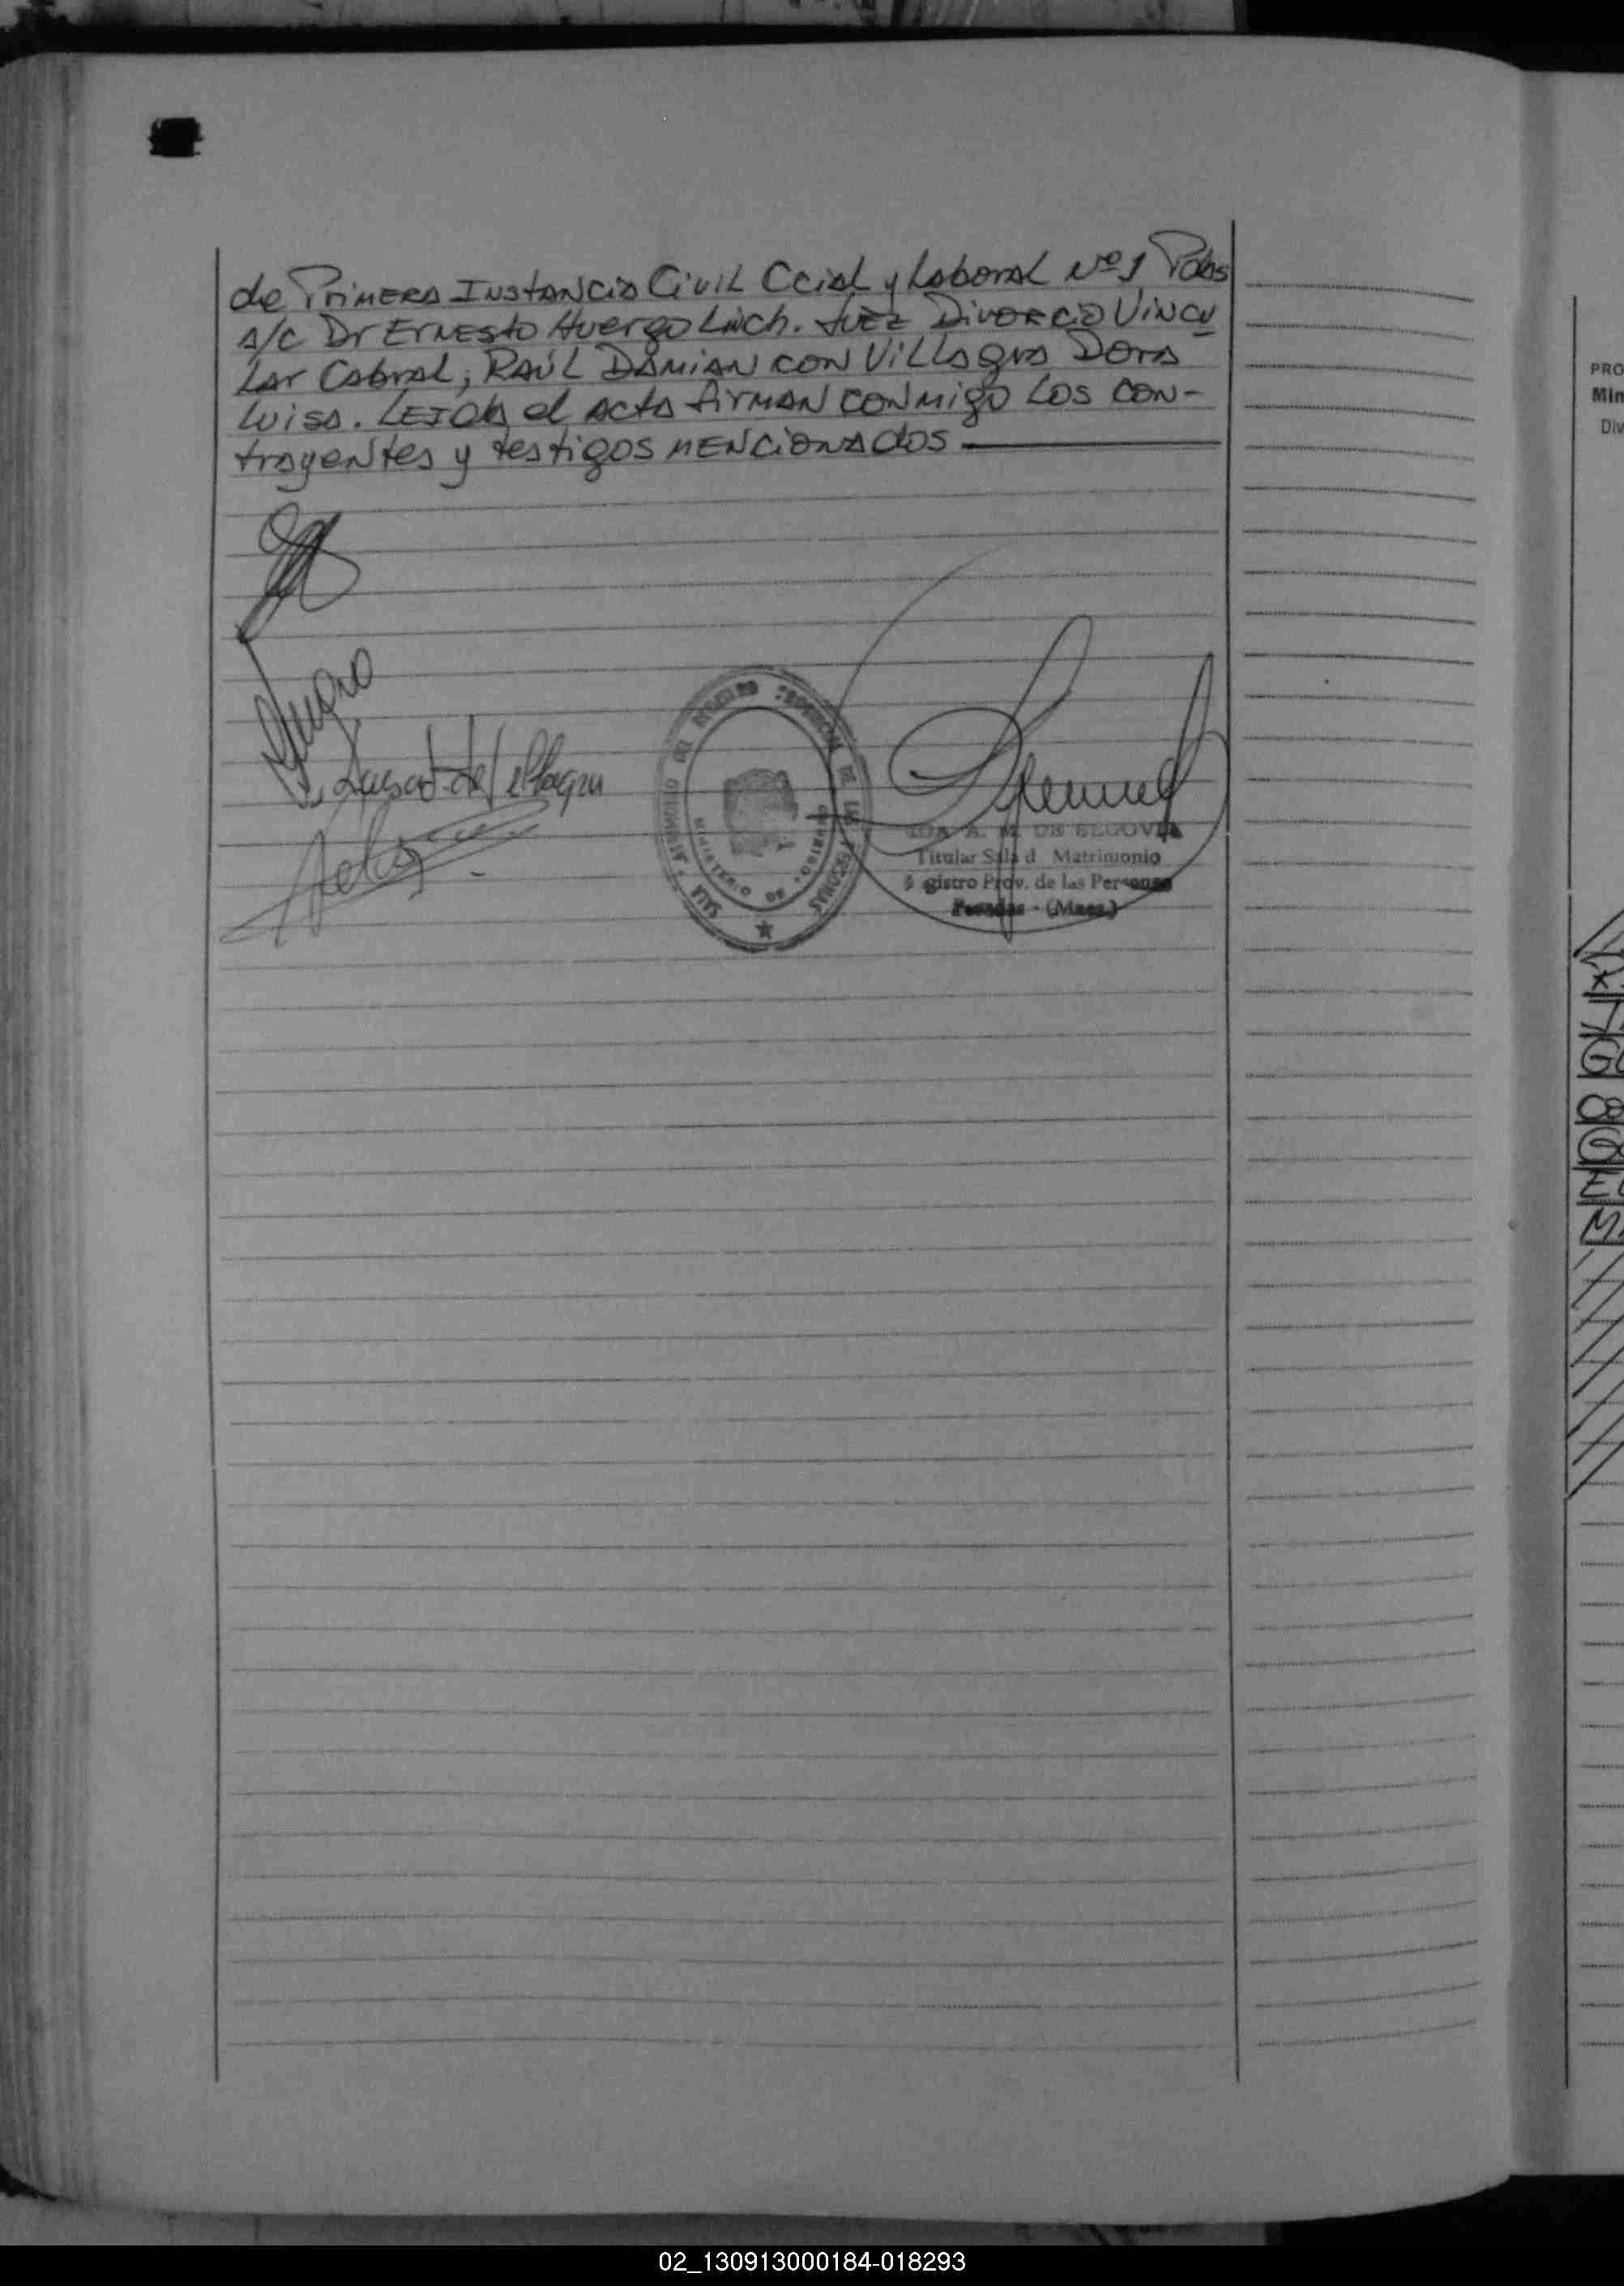 de Primera Instancia Civil Ccial y Laboral Nº1, Pdas
a/c Dr Ernesto Huergo Linch. Juez Divorcio Vincu
lar Cabral; Raúl Damian con Villagra Dora
Luisa. Leida el acta firman conmigo los con-
trayentes y testigos mencionados
SALA MATRIMONIO DEL REGISTRO PROVINCIAL DE LAS PERSONAS
MINISTERIO DE GOBIERNO
A. M. DE SEGOVIA
Titular Sala d Matrimonio
gistro Prov. de las Personas
Posadas - (Mnes.)
PRO
Min
Div
02_130913000184-018293